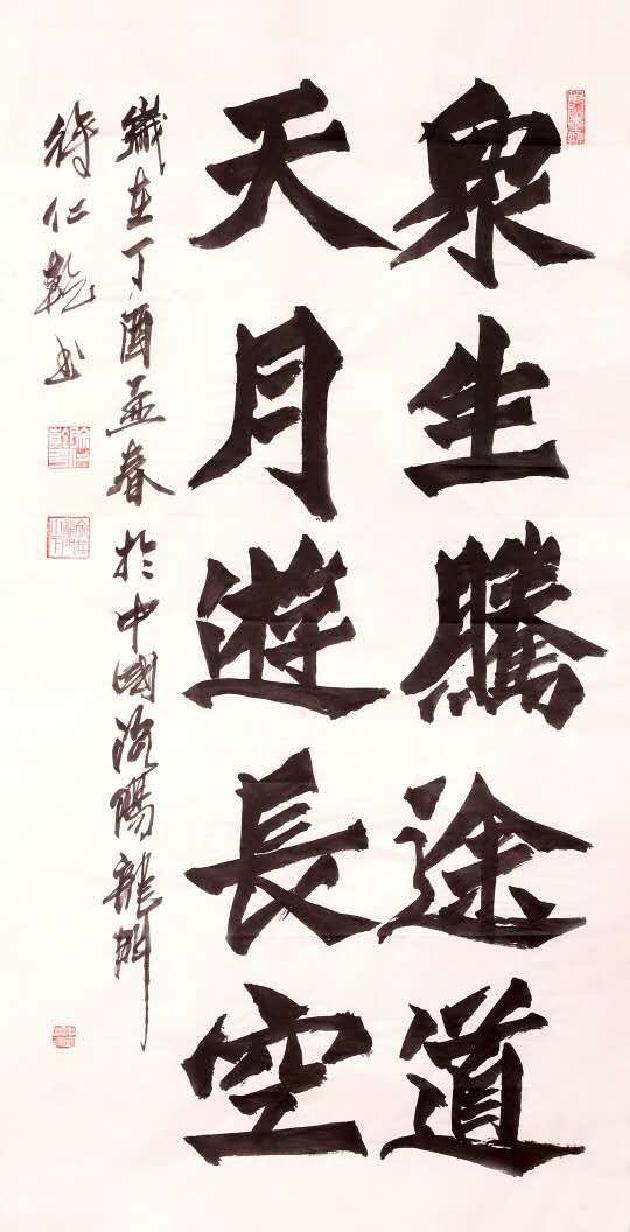 眾生騰途道
天月遊長空
歲在丁酉孟春於中國洛陽龍門
仁乾書